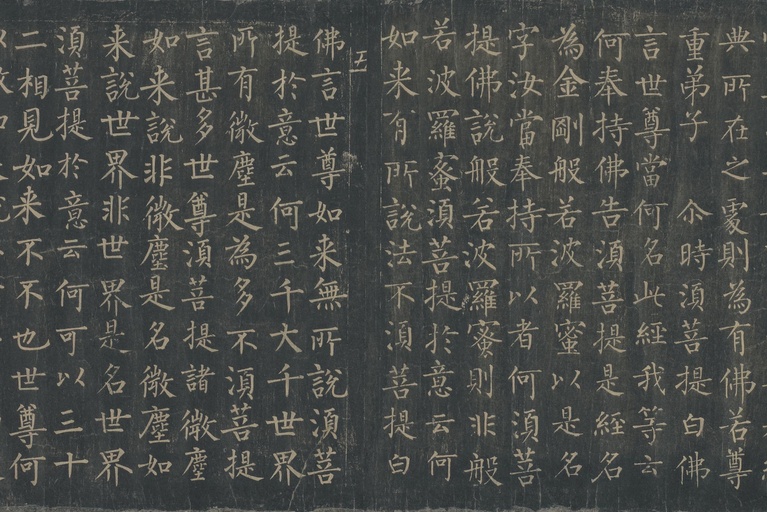 典所在之處則為有佛若尊
重弟子 尒時湏菩提白佛
言世尊當何名此經我等云
何奉持佛告湏菩提是經名
為金剛般若波羅蜜以是名
字汝當奉持所以者何湏菩
提佛說般若波羅蜜則非般
若波羅蜜湏菩提於意云何
如来有所說法不湏菩提白
五
佛言世尊如来無所說湏菩
提於意云何三千大千世界
所有微塵是為多不湏菩提
言甚多世尊湏菩提諸微塵
如来說非微塵是名微塵如
来說世界非世界是名世界
湏菩提於意云何可以三十
二相見如来不不也世尊何